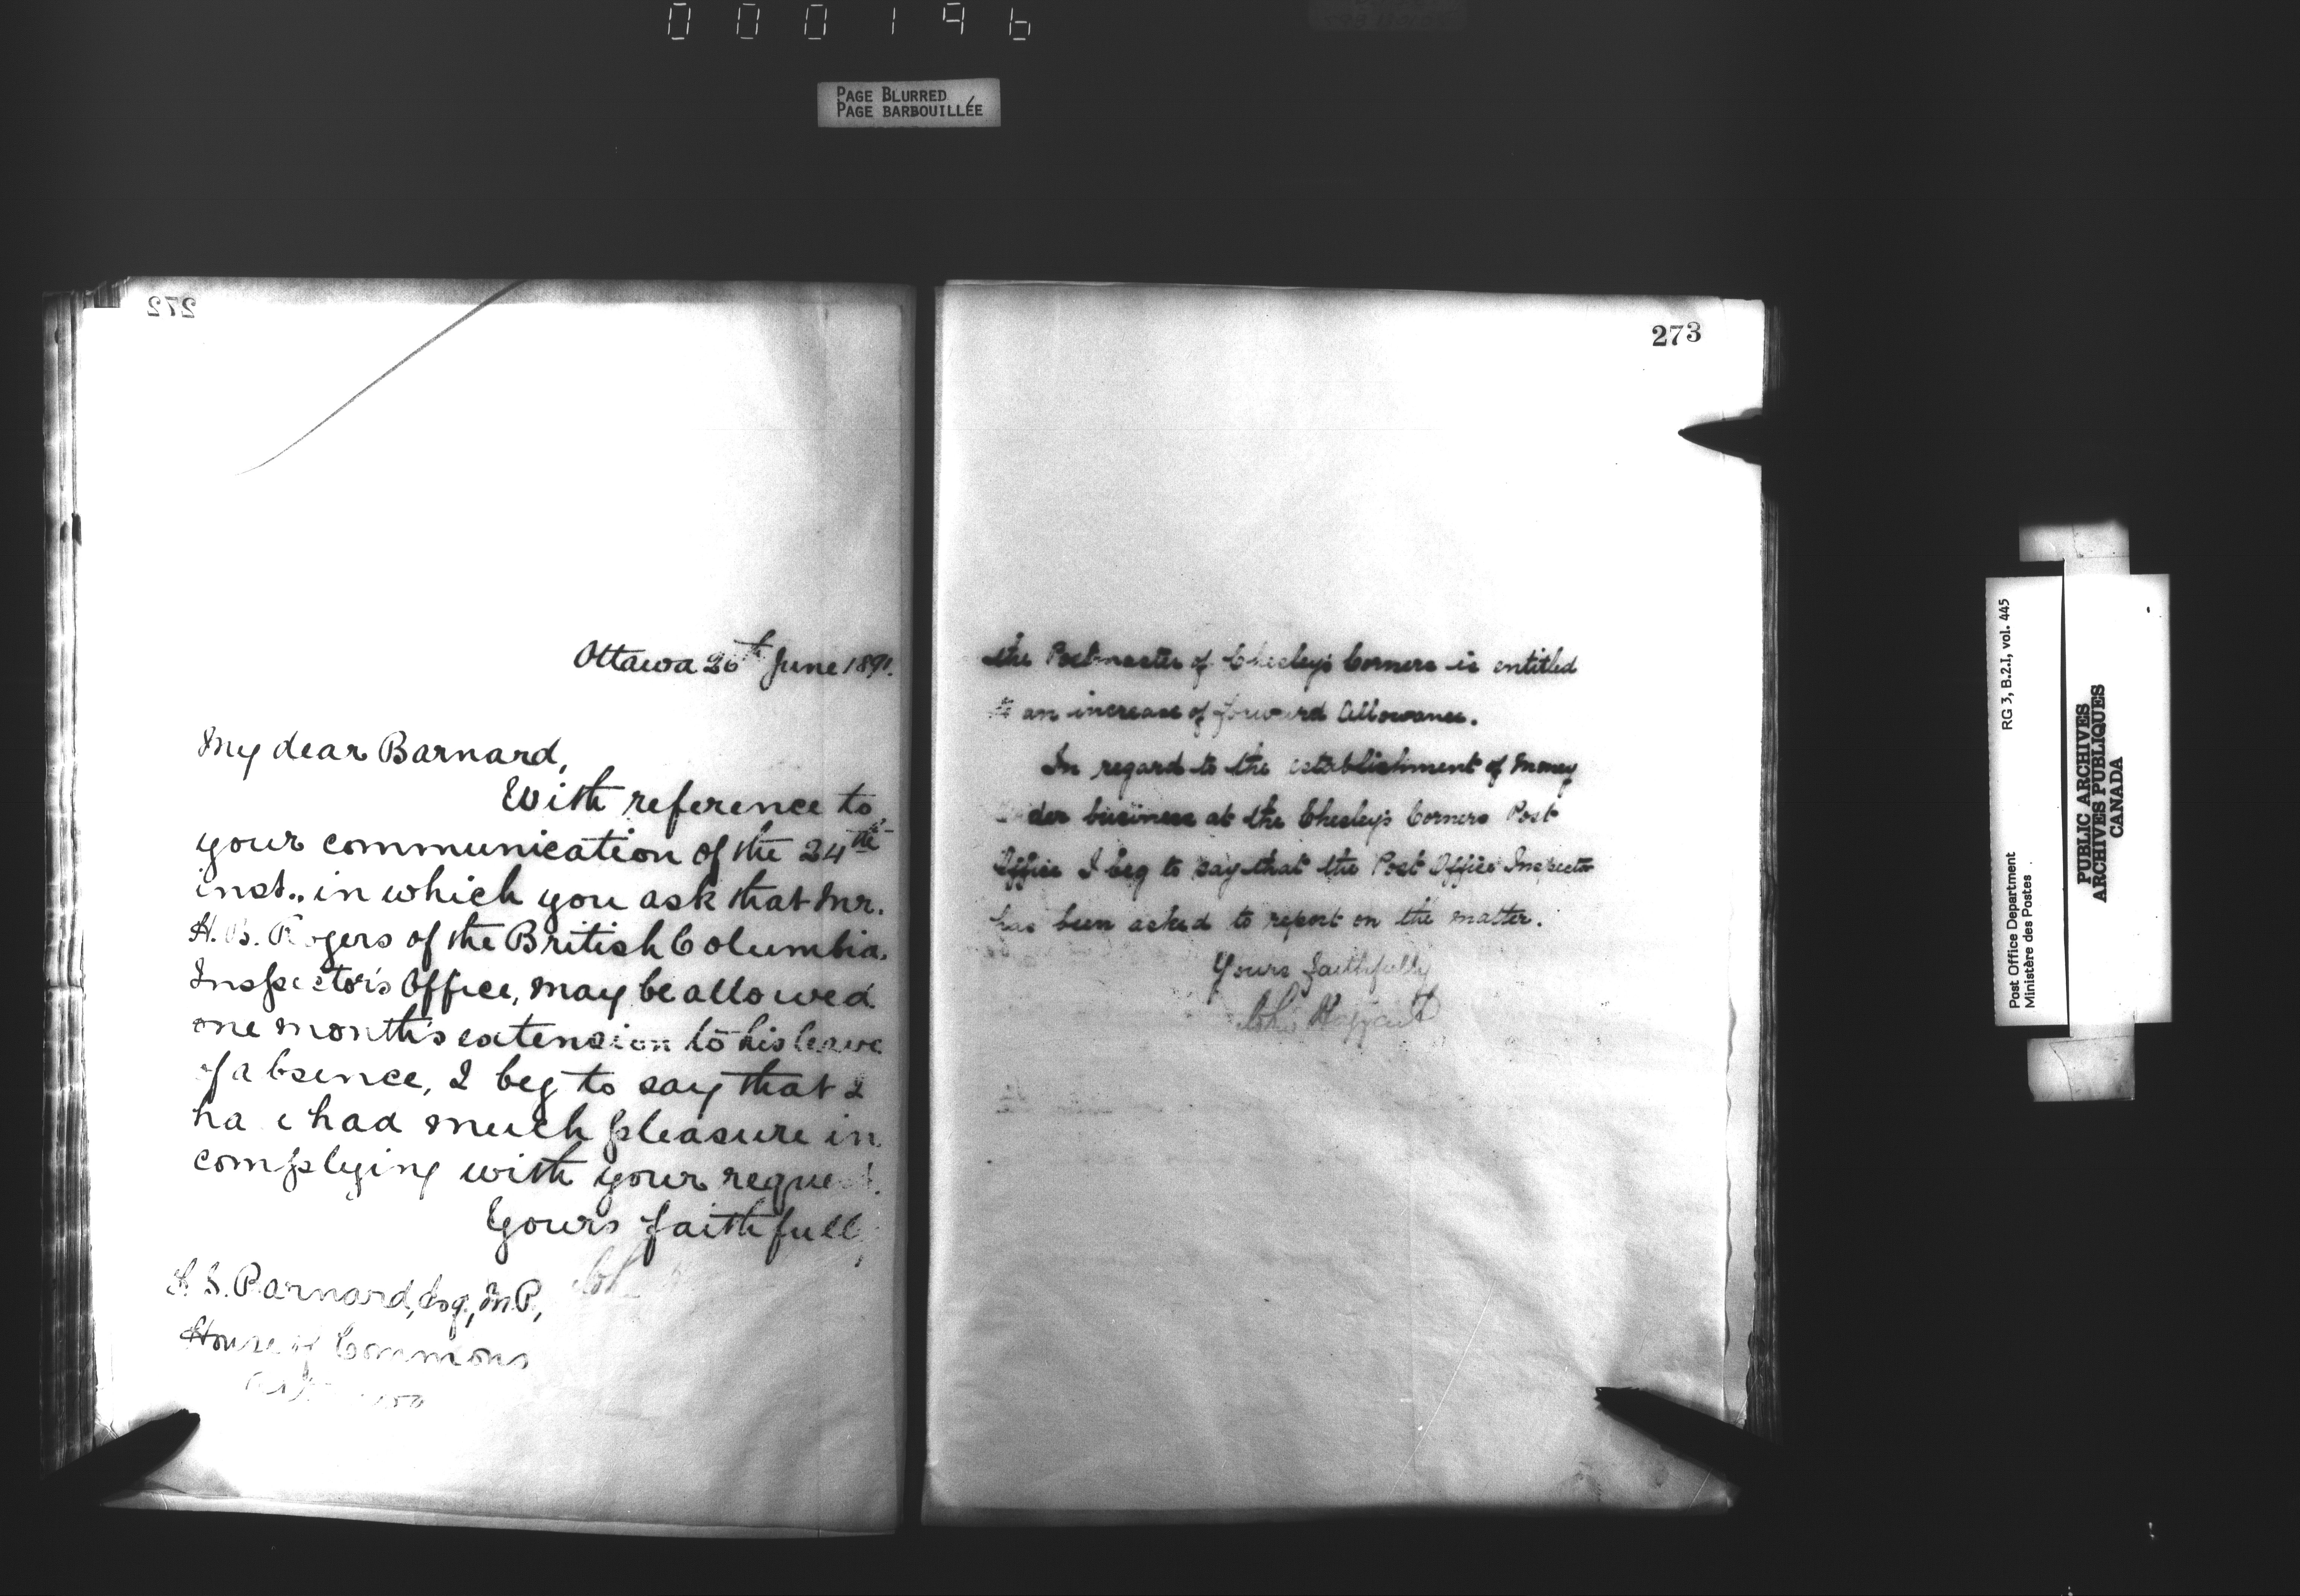 000196
PAGE BLURRED
PAGE BARBOUILLÉE
272
Ottawa 26th June 1891.
My dear Barnard,
With reference to
your communication of the 24th
inst., in which you ask that Mr.
H. B. Rogers of the British Columbia
Inspector's Office, may be allowed
one month's extension to his leave
of absence, I beg to say that I
ha e had much pleasure in
complying with your reque
Yours faithfull
F. S. Barnard, Esq., M.P.,
House of Commons
273
the Postmaster of Chesley's Corners is entitled
to an increase of forward Allowance.
In regard to the establishment of Money
der business at the Chesley's Corners Post
Office I beg to say that the Post Office Inspector
has been asked to report on the matter.
Yours faithfully
John Haggart
Post Office Department
Ministère des Postes
RG 3, B.2.I, vol. 445
PUBLIC ARCHIVES
ARCHIVES PUBLIQUES
CANADA